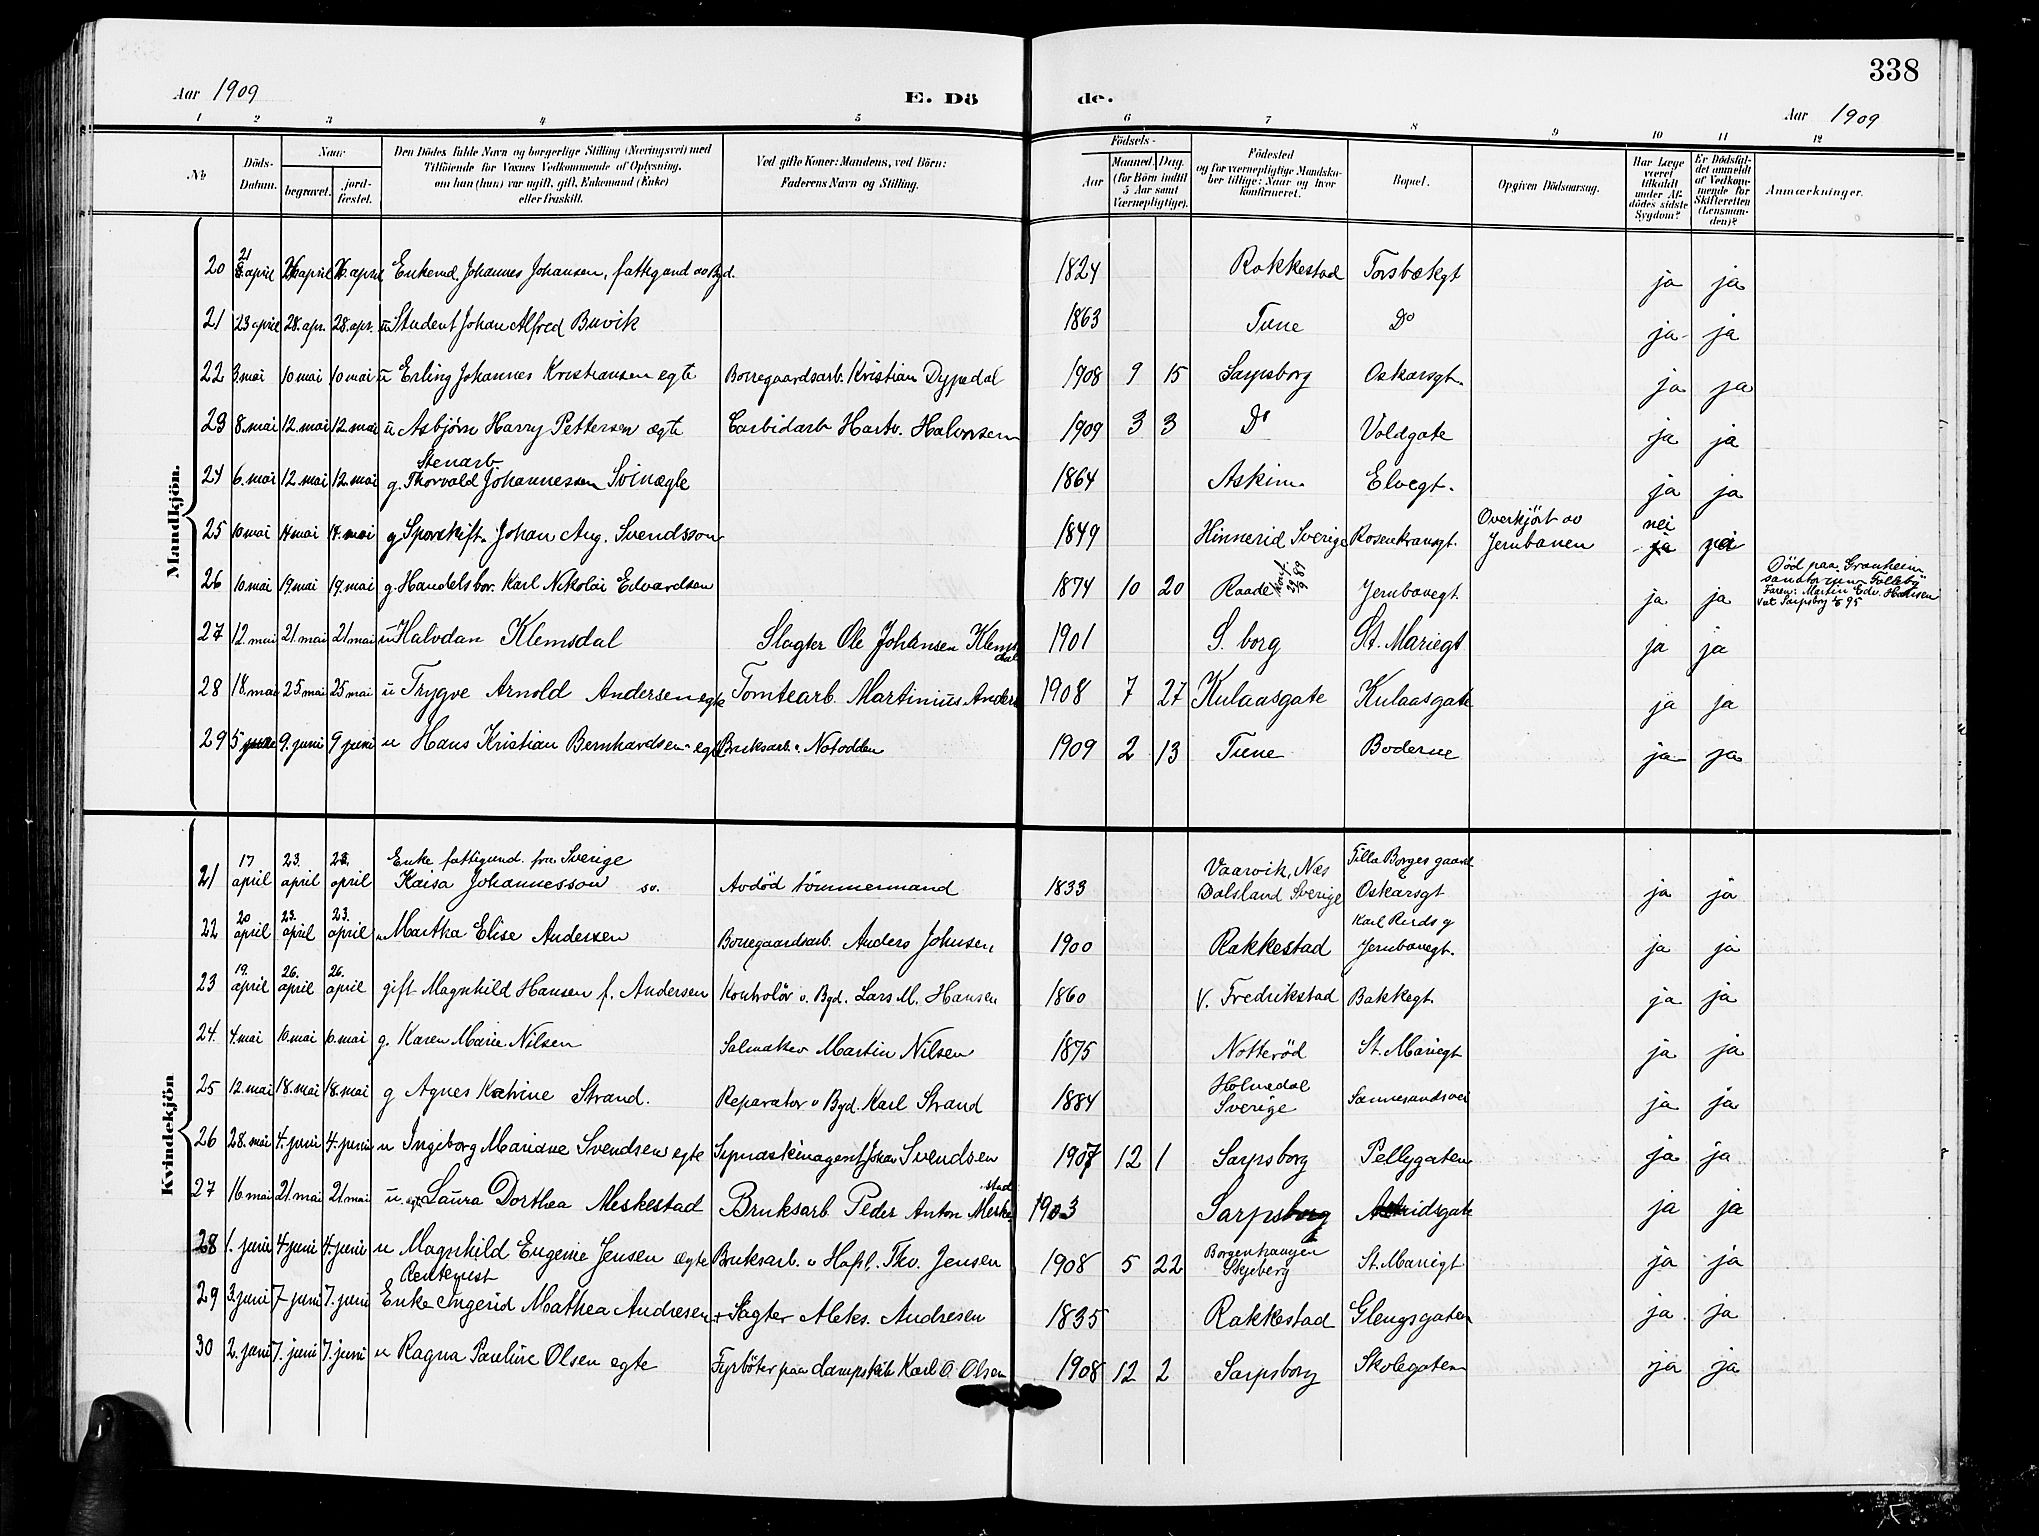 338
Aar 1909
E. Dö
de.
Aar 1909
1 2 3 4 5 6 7 8 9 10 11 12
No
Döds-
Datum.
Naar
begravet.
jord-
fæstet.
Den Dödes fulde Navn og borgerlige Stilling (Næringsvei) med
Tilföiende for Voxnes Vedkommende af Oplysning,
om han (hun) var ugift, gift, Enkemand (Enke)
eller fraskilt.
Ved gifte Koner: Mandens, ved Börn:
Faderens Navn og Stilling.
Födsels-
Aar
Maaned.
Dag.
(for Börn indtil
5 Aar samt
Værnepligtige).
Födested
og for værnepligtige Mandskaber tillige: Naar og hvor
konfirmeret.
Bopæl.
Opgiven Dödsaarsag.
Har Læge
været
tilkaldt
under Af-
dödes sidste
Sygdom?
Er Dödsfal-
det anmeldt
af Vedkom-
mende for
Skifteretten
(Lensman-
den)?
Anmærkninger.
Mandkjön.
20 21 april 26 april 26. april Enkemd. Johannes Johansen, fattigund. av Byd. 1824 Rakkestad Torsbækgt ja ja
21 23 april 28. apr. 28. apr. u Student Johan Alfred Buvik 1863 Tune Do ja ja
22 3. mai 10 mai 10 mai u Erling Johannes Kristiansen egte Borregaardsarb. Kristian Dypedal 1908 9 15 Sarpsborg Oskarsgt. ja ja
23 8. mai 12. mai 12. mai u Asbjörn Harry Pettersen ægte Carbidarb Hartv. Halvorsen 1909 3 3 Do Voldgate ja ja
Stenarb
24 6. mai 12. mai 12. mai g. Thorvald Johannessen Svinægle 1864 Askim Elvegt. ja ja
25 10 mai 14 mai 14. mai g Sporskift. Johan Aug. Svendsson 1849 Hinnerid Sverige Rosenkransgt. Overkjört av Jernbanen nei ja nei
26 10. mai 19. mai 19. mai g. Handelsbor. Karl Nikolai Edvardsen 1874 10 20 Raade konf. 29/9 89 Jernbanegt. ja ja
Död paa Granheim
Folleby
Faren: Martin Edv. Hansen
27 12. mai 21. mai 21. mai u Halvdan Klemsdal Slagter Ole Johansen Klemsdal 1901 S. borg St. Mariegt ja ja
28 18. mai 25. mai 25 mai u Trygve Arnold Andersen egte Tomtearb. Martinius Anders 1908 7 27 Kulaasgate Kulaasgate ja ja
29 5 juni 9. juni 9 juni u Hans Kristian Bernhardsen egt Bruksarb. Notodden 1909 2 13 Tune Boderne ja ja
Kvindekjön
Enke fattigund. fra Sverige Tilla Borges gaard
21 17 april 23. april 23. april Kaisa Johannesson sv. Avdöd tömmermand 1833 Vaarvik, Næs Dalsland Sverige Oskarsgt ja ja
22 20 april 23. april 23. april u Martha Elise Andersen Borregaardsarb. Anders Johnsen 1900 Rakkestad Jernbanegt. ja ja
23 19. april 26. april 26. april gift Magnhild Hansen f. Andersen Kontrolör v. Byd. Lars M. Hansen 1860 V. Fredrikstad Bakkegt. ja ja
24. 4. mai 10. mai 10. mai g. Karen Marie Nilsen Salmaker Martin Nilsen 1875 Notteröd St. Mariegt ja ja
25 12. mai 18. mai 18. mai g Agnes Katrine Strand. Reparatör v Byd. Karl Strand 1884 Holmedal Sverige Sannesundsvei ja ja
26 28. mai 4. juni 4. juni u Ingeborg Mariane Svendsen egte Symaskinagent Johan Svendsen 1907 12 1 Sarpsborg Pellygaten ja ja
27 16 mai 21. mai 21. mai u. egte Laura Dorthea Meskestad Bruksarb Peder Anton Meskestad 1903 Sarpsborg Astridsgate ja ja
28 1. juni 4 juni 4. juni u Magnhild Eugenie Jensen ægte Bruksarb. v Hafsl. Thv. Jensen 1908 5 22 Borgenhaugen Skjeberg St. Mariegt ja ja
29 3. juni 7 juni 7. juni Enke Ingerid Mathea Andresen + Slagter Aleks. Andresen 1835 Rakkestad Glengsgaten ja ja
30 2. juni 7. juni 7. juni u Ragna Pauline Olsen egte Fyrböter paa dampskib Karl O. Olsen 1908 12 2 Sarpsborg Skolegaten ja ja